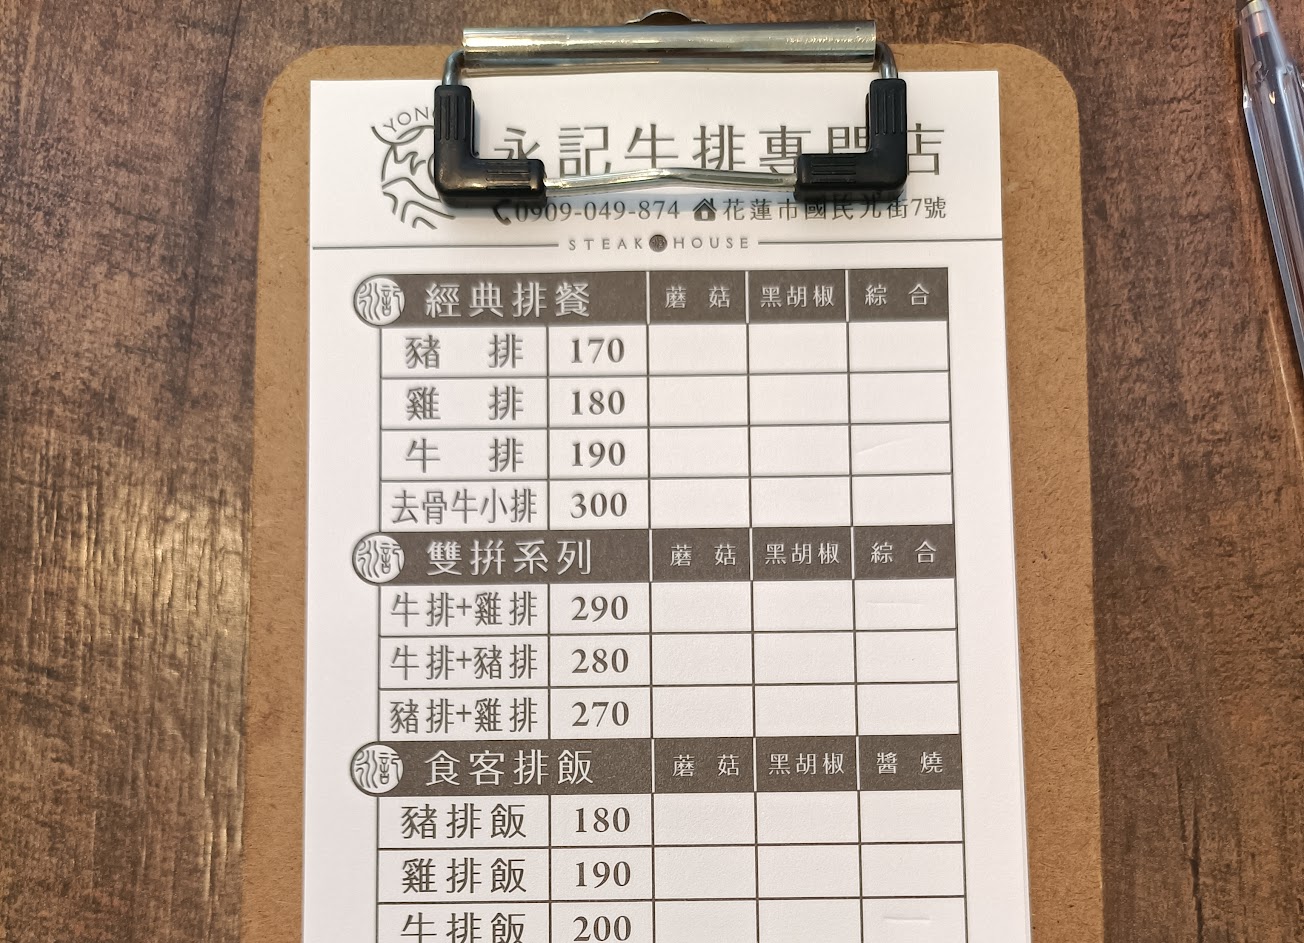 YONG
永記牛排專門店
0909-049-874 花蓮市國民九街7號
STEAK HOUSE
永記 經典排餐 蘑菇 黑胡椒 綜合
豬排 170
雞排 180
牛排 190
去骨牛小排 300
永記 雙拚系列 蘑菇 黑胡椒 綜合
牛排+雞排 290
牛排+豬排 280
豬排+雞排 270
永記 食客排飯 蘑菇 黑胡椒 醬燒
豬排飯 180
雞排飯 190
牛排飯 200